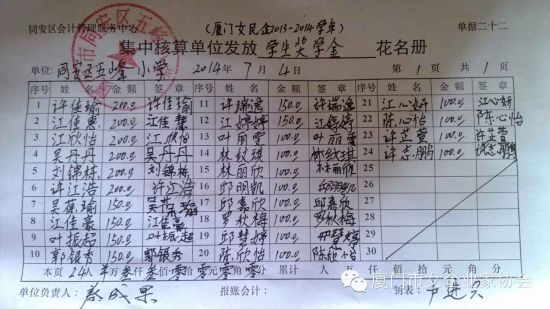 同安区会计管理服务中心 (厦门女民企2013-2014学年) 单据二十二
集中核算单位发放 学生奖学金 花名册
单位: 同安区五峰小学 2014年 7月 4日 第 1 页 共 1 页
序号 姓名 金额 签章 序号 姓名 金额 签章 序号 姓名 金额 签章
1 许佳瑜 200.0 许佳瑜 11 许瑞逸 150.0 许瑞逸 21 江心妍 100.0 江心妍
2 江佳惠 200.0 江佳惠 12 江婷婷 150.0 江婷婷 22 陈心怡 100.0 陈心怡
3 江欣怡 200.0 江欣怡 13 叶丽雯 100.0 叶丽雯 23 许芷萱 100.0 许芷萱
4 吴丹丹 200.0 吴丹丹 14 林纹琪 100.0 林纹琪 24 许志鹏 100.0 许志鹏
5 刘锦林 200.0 刘锦林 15 林丽欣 100.0 林丽欣 25
6 许江浩 200.0 许江浩 16 邱明凯 100.0 邱明凯 26
7 吴葆瑜 150.0 吴葆瑜 17 邱嘉欣 100.0 邱嘉欣 27
8 江佳豪 150.0 江佳豪 18 罗秋梅 100.0 罗秋梅 28
9 叶振超 150.0 叶振超 19 邱慧婷 100.0 邱慧婷 29
10 郭银秀 150.0 郭银秀 20 陈欣怡 100.0 陈欣怡 30
本页 24人 叁仟叁佰零拾零元零角零分 累计 人 仟 佰 拾 元 角 分
单位负责人: 报账会计: 制表:
厦门市女企业家协会